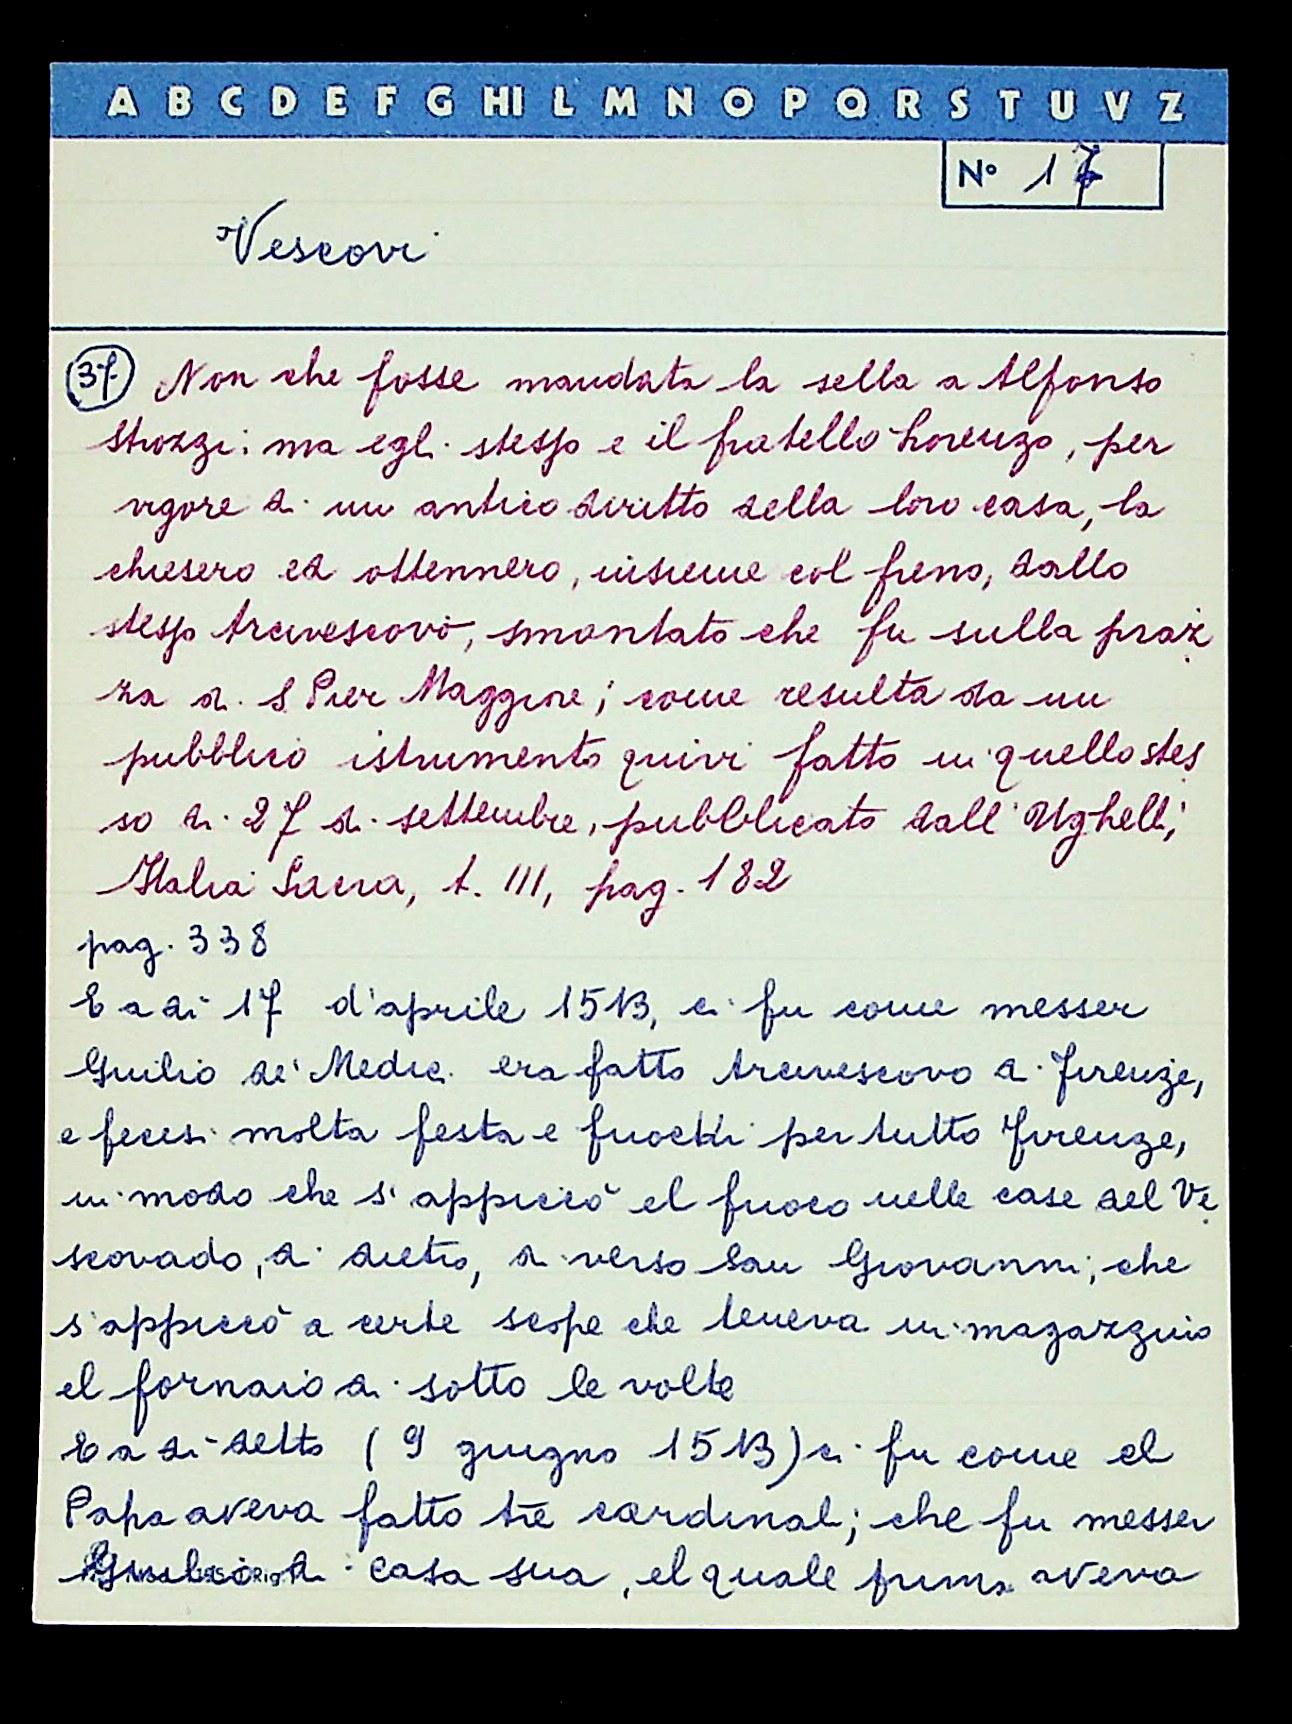 A B C D E F G HI L M N O P Q R S T U V Z
N° 17
Vescovi
37 Non che fosse mandata la sella a Alfonso
Strozzi: ma egli stesso e il fratello Lorenzo, per
vigore di un antico diritto della loro casa, la
chiesero ed ottennero, insieme col freno, dallo
stesso Arcivescovo, smontato che fu sulla piaz
za di S Pier Maggiore; come resulta da un
pubblico istrumento quivi fatto in quello stes
so dì 27 di settembre, pubblicato dall'Ughelli,
Italia Sacra, t. III, pag. 182
pag. 338
E a dì 17 d'aprile 1513, ci fu come messer
Giulio de' Medici era fatto Arcivescovo di Firenze,
e fecesi molta festa e fuochi per tutto Firenze,
in modo che s'appiccò el fuoco nelle case del Ve
scovado, di dietro, di verso San Giovanni, che
s'appiccò a certe scope che teneva in magazzino
el fornaio di sotto le volte
E a dì detto (9 giugno 1513) ci fu come el
Papa aveva fatto tre cardinali; che fu messer
Giulio di casa sua, el quale prima aveva